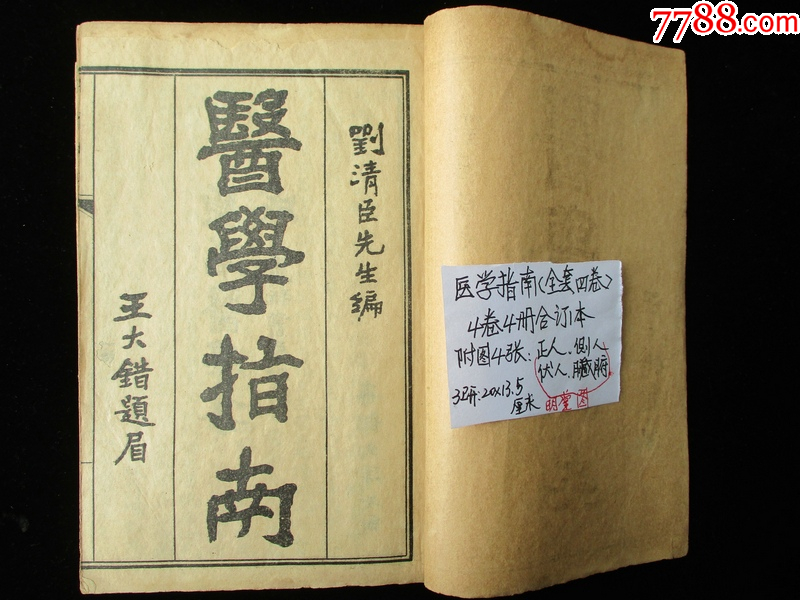 7788.com
劉清臣先生編
醫學指南
王大錯題眉
医学指南(全套四卷)
4卷4册合订本
附图4张:正人.側人
伏人.臟腑.
明堂图
20x13.5
厘米